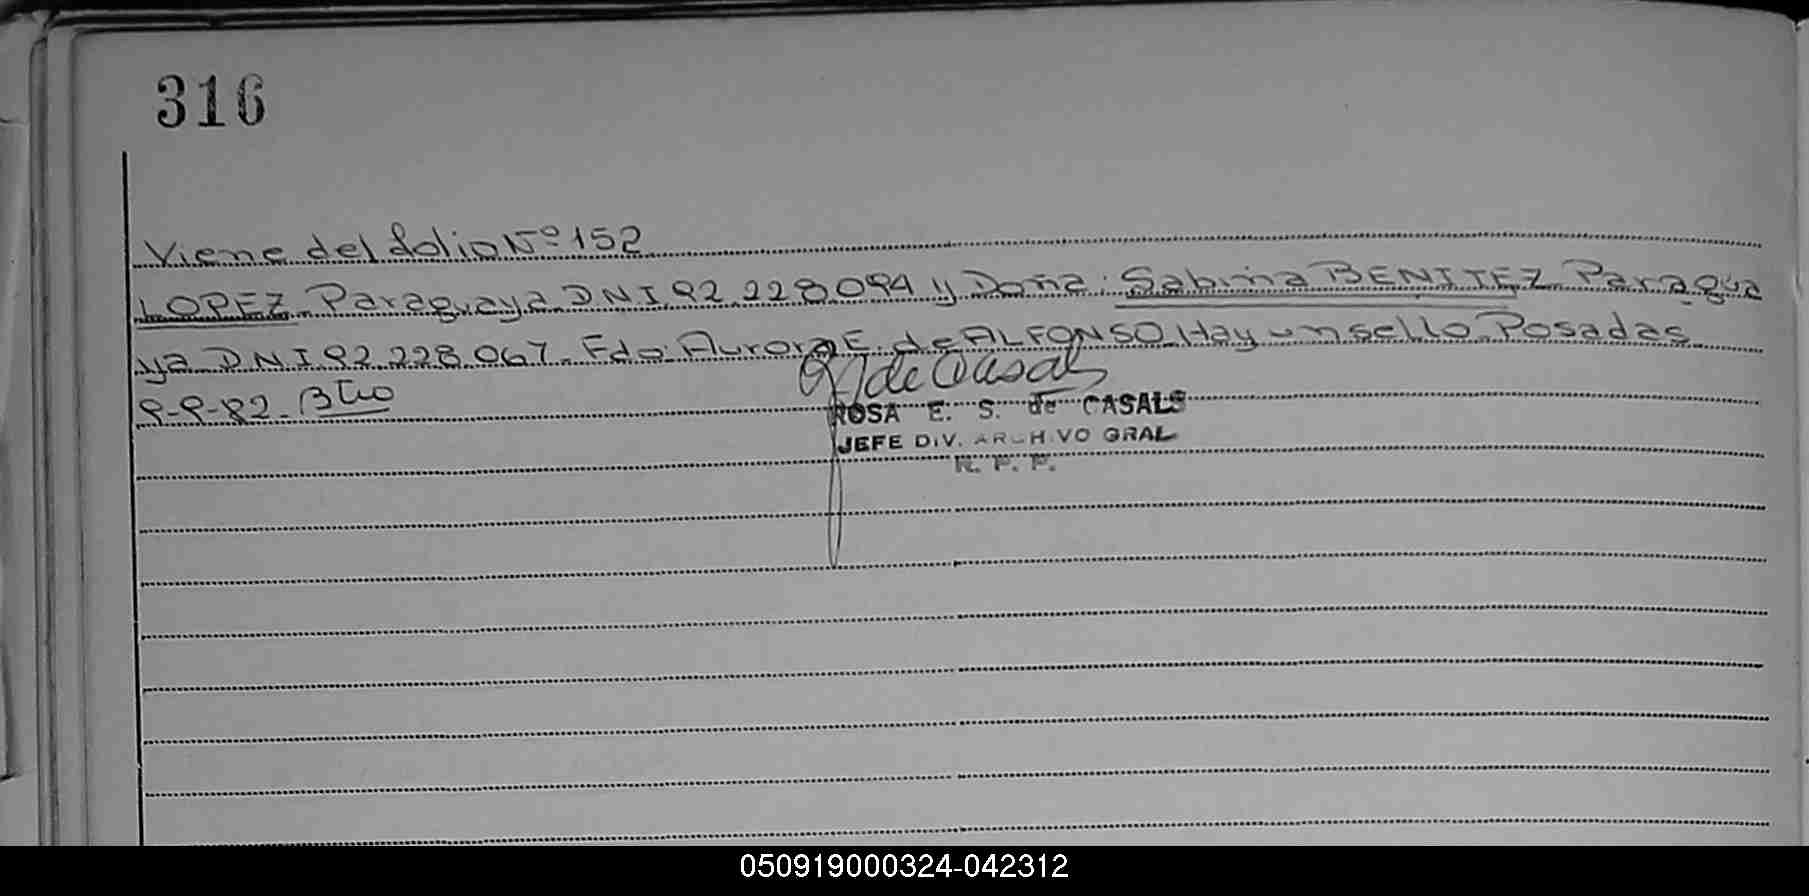 316
Viene del folio Nº 152
LOPEZ. Paraguaya DNI 92.228.094 y Doña: Sabina BENITEZ Paragua
ya DNI 92.228.067. Fdo: Aurora E. de ALFONSO. Hay un sello. Posadas
9-9-82.
ROSA E. S. de CASALS
JEFE DIV. ARCHIVO GRAL
R. P. P.
050919000324-042312